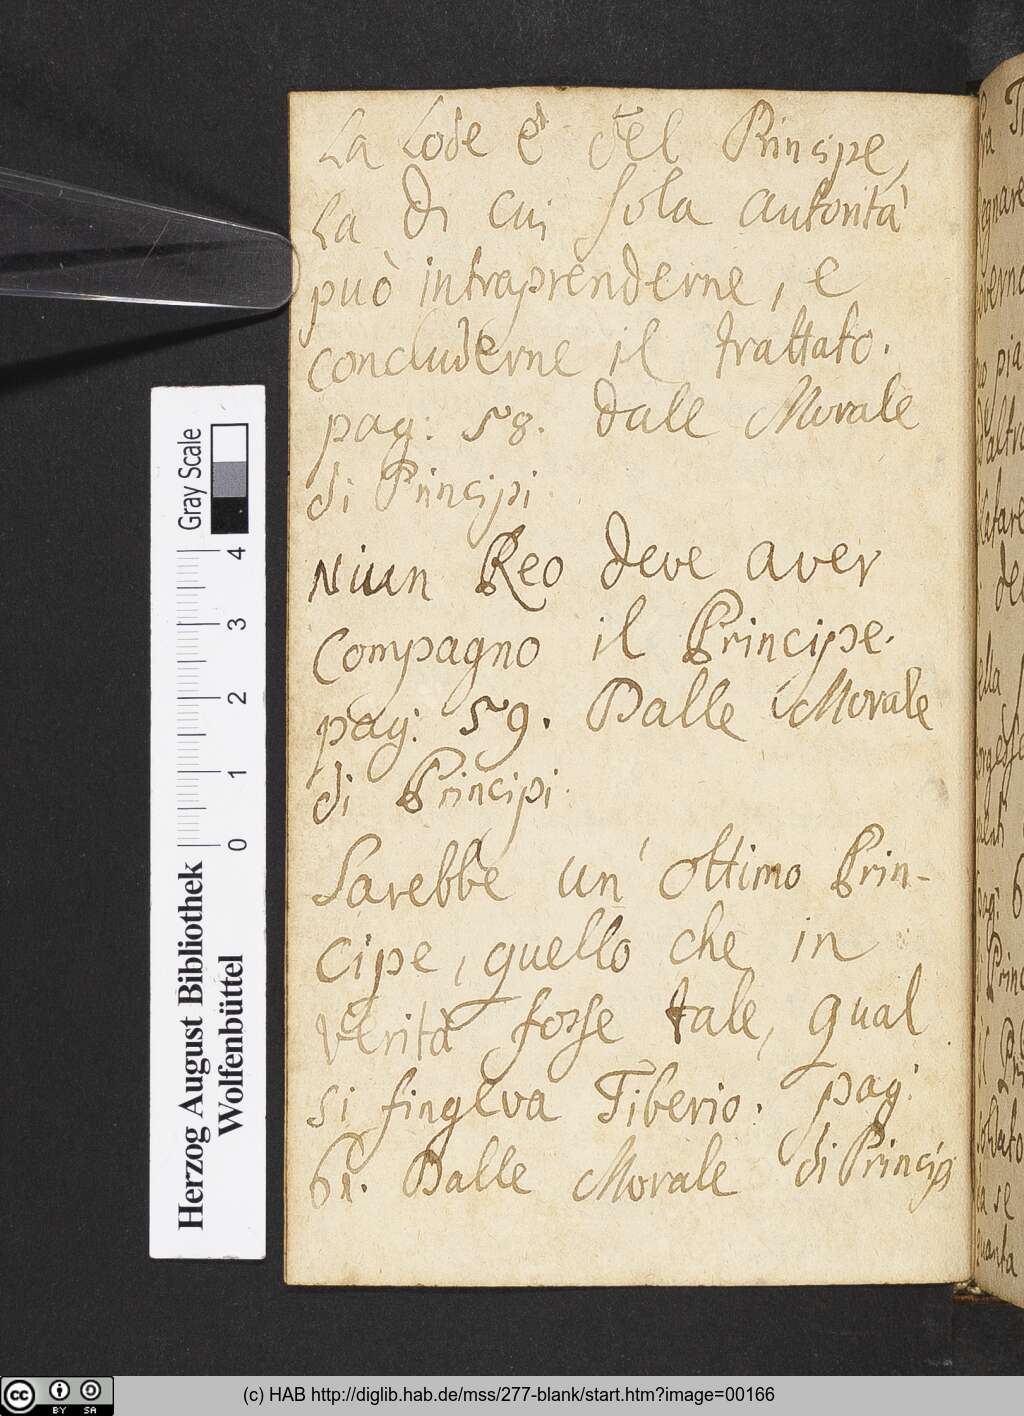 La Lode è del Principe,
la di cui sola autorità
può intraprenderne, e
concluderne il trattato.
pag: 58. dalle Morale
di Principi.
Niun Reo deve aver
Compagno il Principe.
pag: 59. Dalle Morale
di Principi.
Sarebbe un' Ottimo Prin-
cipe, quello che in
verità fosse tale, qual
si fingeva Tiberio. pag:
61. Dalle Morale di Princip
Gray Scale
4
3
2
1
0
Herzog August Bibliothek
Wolfenbüttel
cc BY SA
(c) HAB http://diglib.hab.de/mss/277-blank/start.htm?image=00166